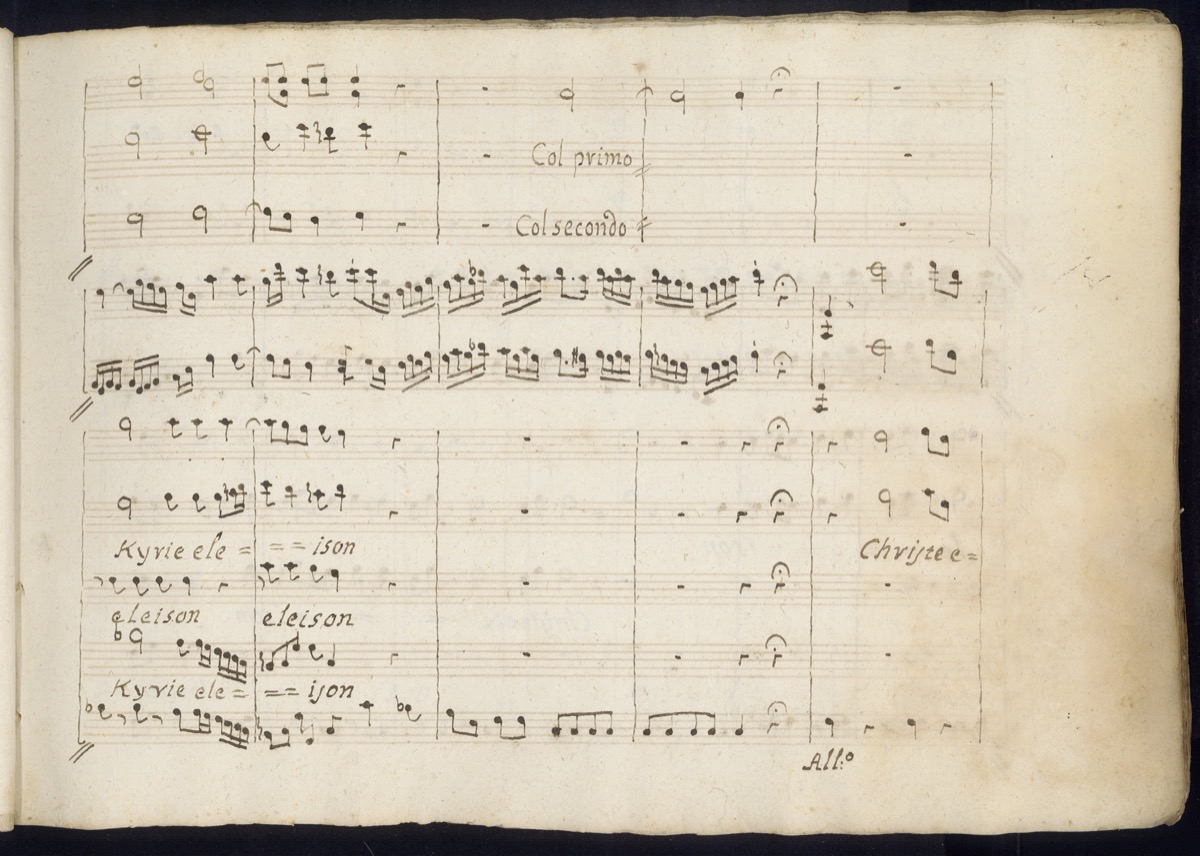 Col primo
Col secondo
Kyrie ele = = = ison
Christe e =
eleison eleison
Kyrie ele = == ison
All:o